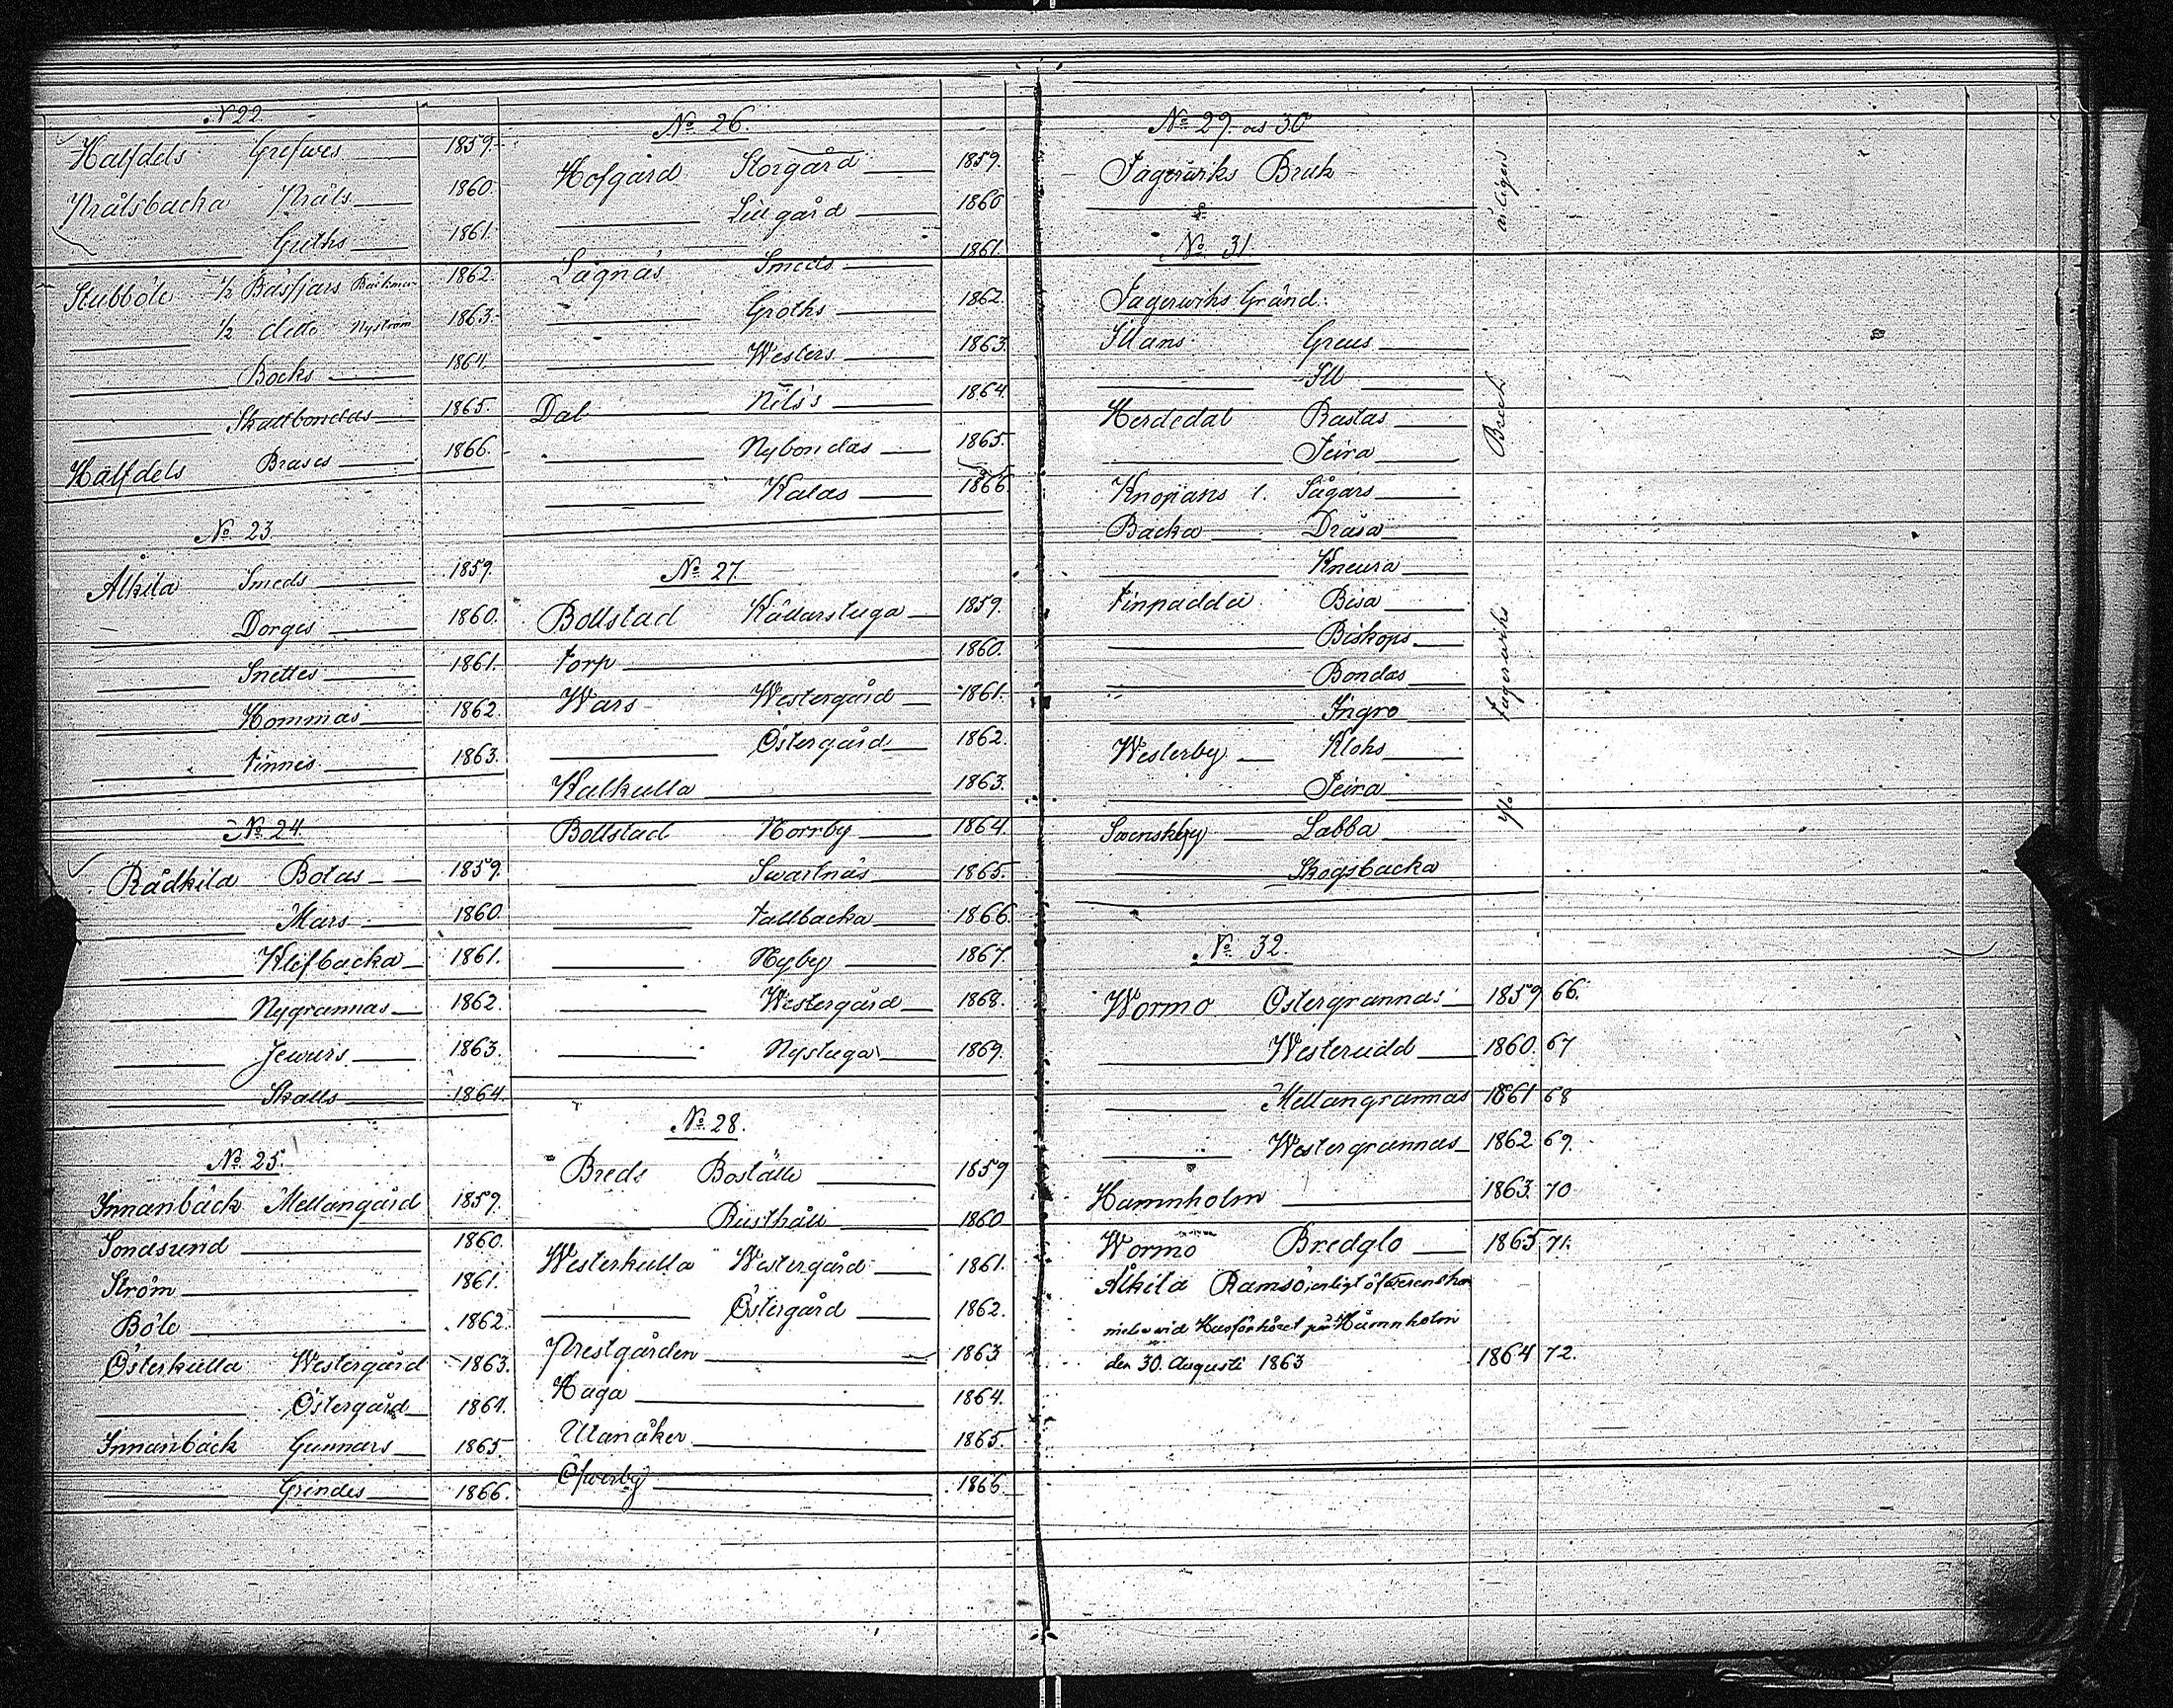 N 22
Halfdels Grefves 1859.
Prålsbacka Pråls 1860
Guths 1861.
Stubböle ½ Båsfjars Bäckman 1862.
½ ditto Nyström 1863.
Bocks 1864.
Skallbondas 1865.
Halfdels Brases 1866.
No 23.
Ålkila Smeds 1859.
Dorges 1860.
Snettes 1861.
Hommas 1862
Finnis 1863.
No 24.
Rådkila Botas 1859.
Mars 1860
Klifbacka 1861.
Nygrannas 1862.
Jewurs 1863.
Skalls 1864.
No 25.
Innanbäck Mellangård 1859.
Sondsund 1860.
Ström 1861.
Böle 1862.
Österkulla Westergård 1863.
Östergård 1864.
Innanbäck Gunnars 1865
Grindes 1866.
No 26.
Hofgård Storgård 1859.
Lillgård 1860
Lågnäs Smeds 1861.
Groths 1862.
Westers 1863.
Dal Nils's 1864.
Nybondas 1865.
Kalas 1866.
No 27.
Bollstad Källarstuga 1859.
Torp 1860.
Wars Westergård 1861.
Östergård 1862.
Kalkulla 1863.
Bollstad Norrby 1864.
Swartnäs 1865.
Tallbacka 1866.
Nyby 1867.
Westergård 1868.
Nystuga 1869.
No 28.
Breds Boställe 1859
Rusthåll 1860
Westerkulla Westergård 1861.
Östergård 1862.
Prestgården 1863
Haga 1864.
Utanåker 1865.
Öfverby 1866.
No 29. och 30
Fagerwiks Bruk
No 31.
Fagerwiks Gränd.
Illans Greus
Ill
Herdedal Rastas
Jeira
Knopans l. Sågars
Backa Drasa
Kneura
Finpadda Bisa
Biskops
Bondas
Ingro
Westerby Klohs
Jeira
Swenskby Labba
Skogsbacka
På Fagerwiks Bruk årligen
No 32.
Wormö Östergrannas 1859 66.
Westerudd 1860. 67
Mellangrannas 1861 68
Westergrannas 1862 69.
Hamnholm 1863. 70
Wormö Bredglo 1865 71.
Ålkila Ramsö, enligt öfverensko
melse vid Husförhöret på Hamnholm
den 30. Augusti 1863 1864 72.